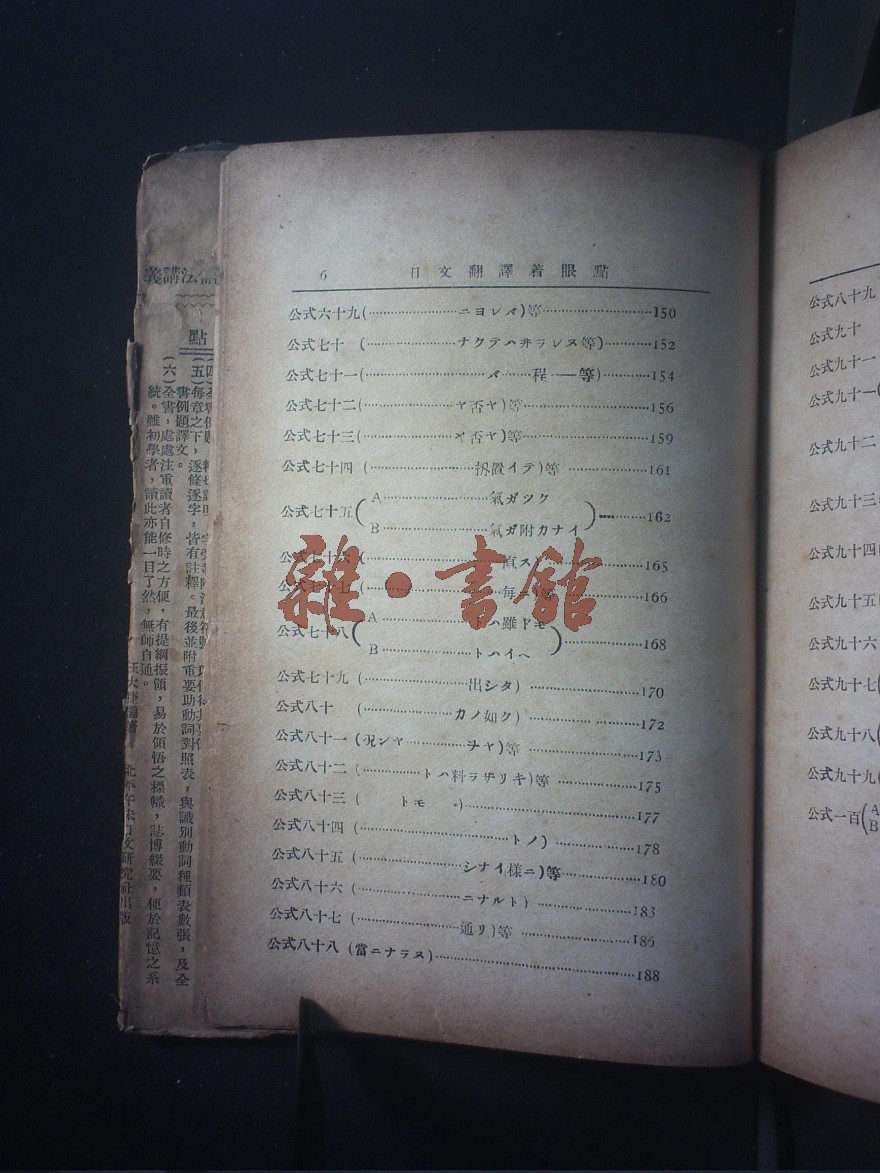 6 日文翻譯着眼點
公式六十九(……………ニヨレバ)等……………150
公式七十 (……………ナクテハ弗ラレヌ等)…………152
公式七十一(……………バ……程——等)…………154
公式七十二(……………ヤ否ヤ)等……………156
公式七十三(……………ヤ否ヤ)等……………159
公式七十四 (……………措置イテ)等……………161
公式七十五(A……………氣ガツク
B……………氣ガ附カナイ)……………162
公式七十六(……………直ス……………165
公式七十七(……………毎ニ)等……………166
公式七十八(A……………トハ雖ドモ
B……………トハイヘ)……………168
公式七十九 (……………出シタ) ……………170
公式八十 (……………カノ如ク) ……………172
公式八十一 (況シヤ…………ヲヤ)等……………173
公式八十二 (…………トハ料ラザリキ)等……………175
公式八十三 ( トモ )……………177
公式八十四 (……………トノ)……………178
公式八十五 (……………シナイ樣ニ)等……………180
公式八十六 (……………ニナルト)……………183
公式八十七 (……………通リ)等……………186
公式八十八 (當ニナラヌ)……………188
雜·書館
法講義
點
(五)每章之下,逐條逐字,皆有註釋。最後並附重要助動詞對照表,與識別動詞種類表數張,及全
書例題譯文。
(六)全書,處處注重讀者自修時之方便,有提綱振領,易於領悟之標幟,誌博綴要,便於記憶之系
統。雖初學者,讀此亦能一目了然,無師自通。
文研究社出版
公式八十九
公式九十
公式九十一
公式九十一(
公式九十二
公式九十三
公式九十四(
公式九十五
公式九十六
公式九十七(
公式九十八(
公式九十九(
公式一百(A
B